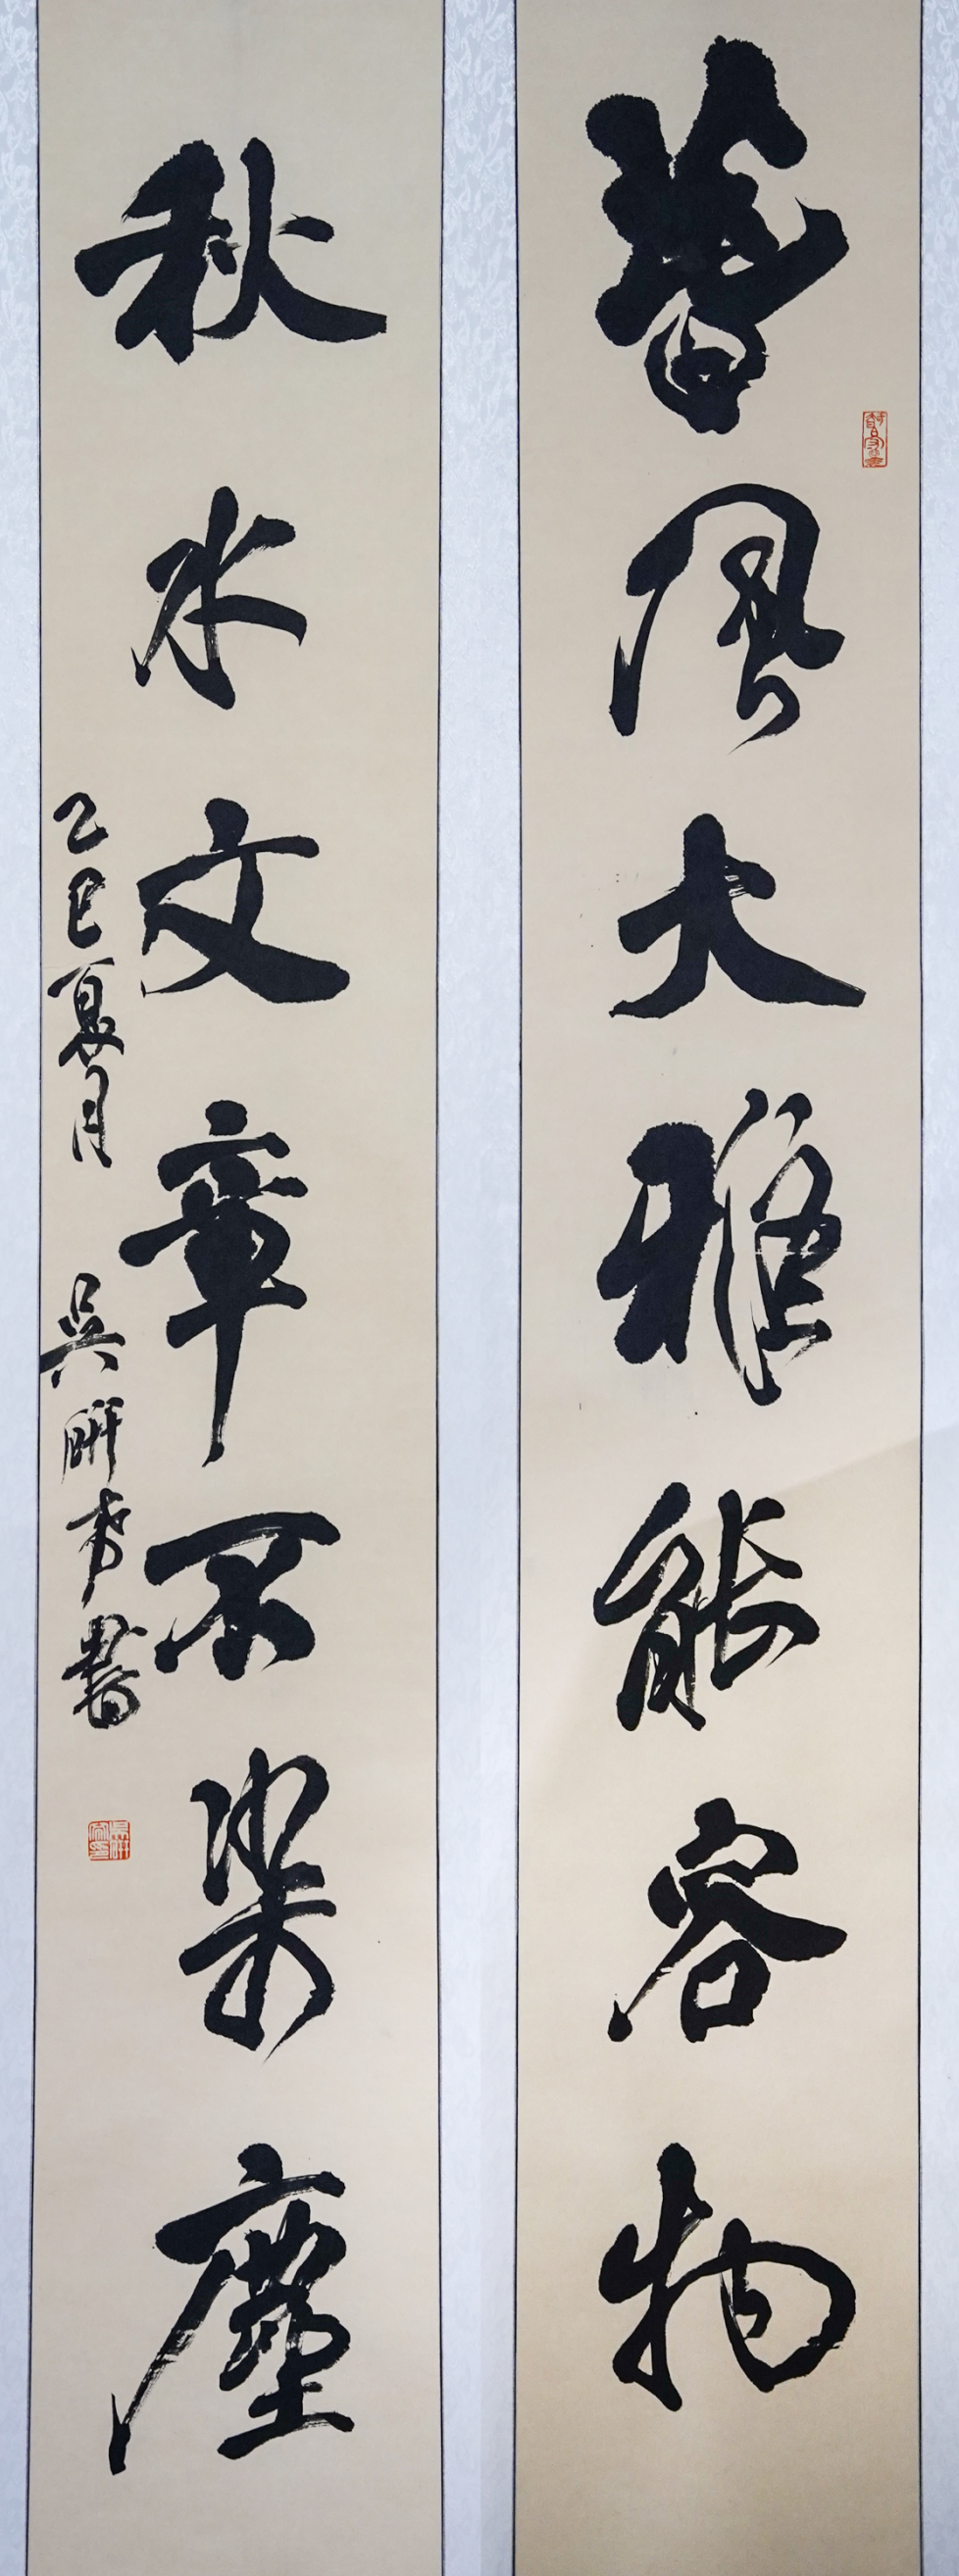 春風大雅能容物
秋水文章不染塵
乙巳夏月
吳研書